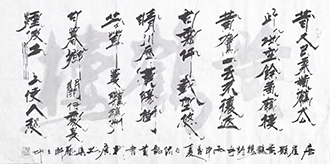 昔人已乘黃鶴去
此地空餘黃鶴樓
黃鶴一去不復返
白雲千載空悠悠
晴川歷歷漢陽樹
芳草萋萋鸚鵡洲
日暮鄉關何處是
煙波江上使人愁
唐崔顥黃鶴樓